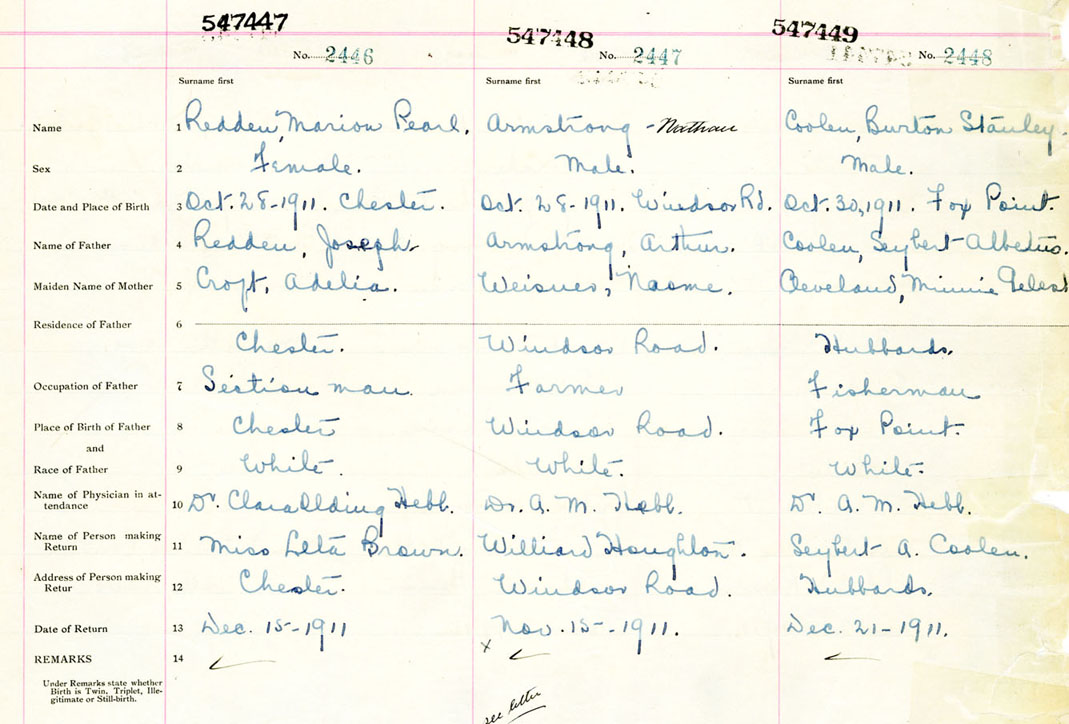 547447 547448 547449
No. 2446 No. 2447 No. 2448
Surname first Surname first Surname first
Name 1 Redden, Marion Pearl. Armstrong - Nathan Coolen, Burton Stanley.
Sex 2 Female. Male. Male.
Date and Place of Birth 3 Oct. 28-1911. Chester. Oct. 28-1911. Windsor Rd. Oct. 30, 1911. Fox Point.
Name of Father 4 Redden, Joseph Armstrong, Arthur. Coolen, Seybert
Maiden Name of Mother 5 Croft, Adelia. Naome. Cleveland, Minnie
Residence of Father 6
Chester. Windsor Road. Hubbards.
Occupation of Father 7 Section man. Farmer Fisherman
Place of Birth of Father 8 Chester Windsor Road. Fox Point.
and
Race of Father 9 White. White. White.
Name of Physician in at-
tendance 10 Dr. Clara Hebb. Dr. A. M. Hebb. Dr. A. M. Hebb.
Name of Person making
Return 11 Miss Leta Brown. Williard Houghton. Seybert A. Coolen.
Address of Person making
Retur 12 Chester. Windsor Road. Hubbards.
Date of Return 13 Dec. 15-1911 Nov. 15-1911. Dec. 21-1911.
REMARKS 14 x
Under Remarks state whether
Birth is Twin, Triplet, Ille-
gitimate or Still-birth.
see letter